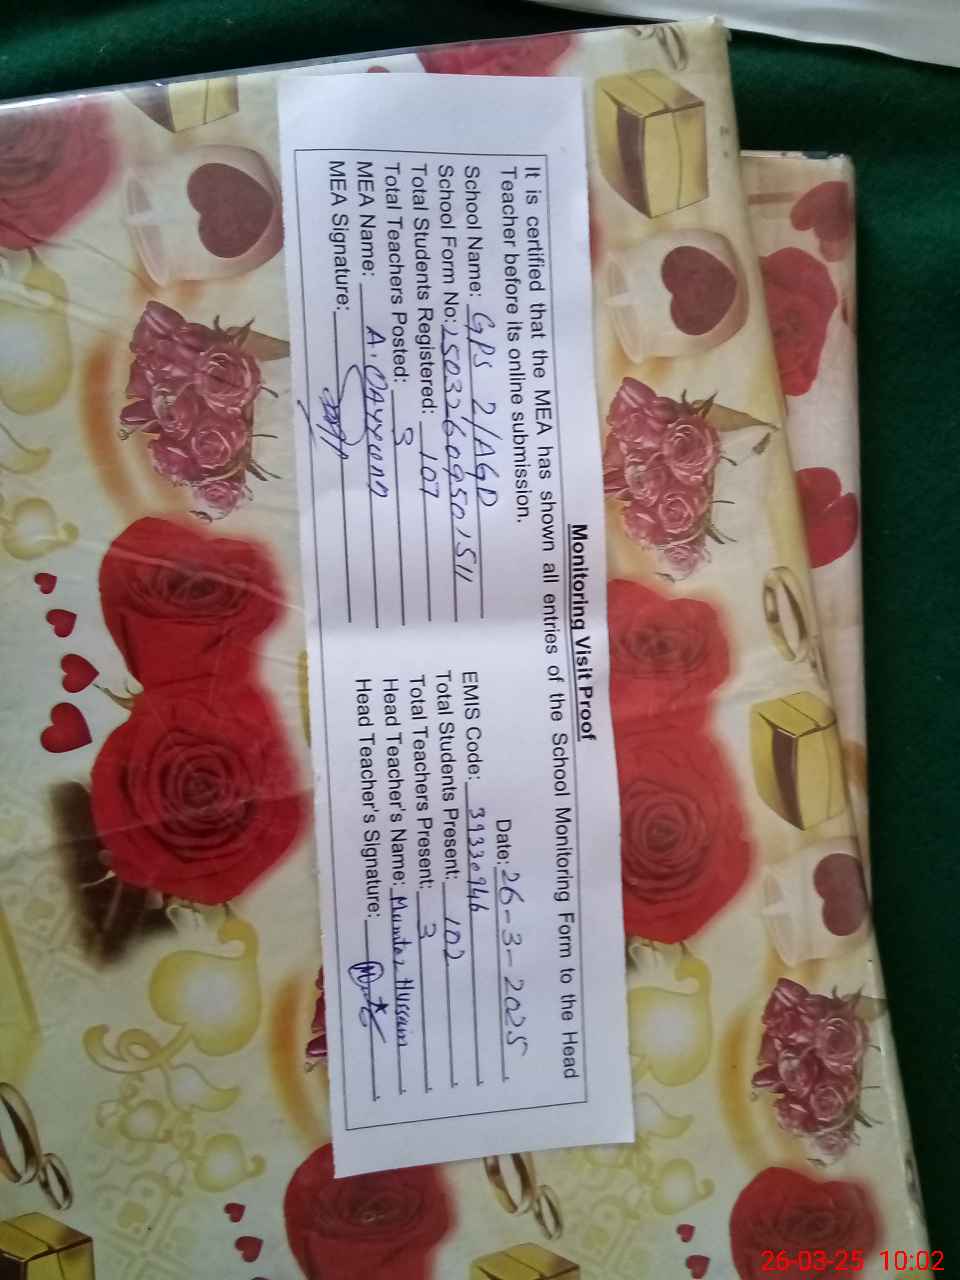 Monitoring Visit Proof
It is certified that the MEA has shown all entries of the School Monitoring Form to the Head
Teacher before its online submission.
Date: 26-3-2025
School Name: GPS 2/AGD EMIS Code: 39330946
School Form No: 25032609501511 Total Students Present: 102
Total Students Registered: 107 Total Teachers Present: 3
Total Teachers Posted: 3 Head Teacher's Name: Mumtaz Hussain
MEA Name: A.Qayyum Head Teacher's Signature:
MEA Signature:
26-03-25 10:02